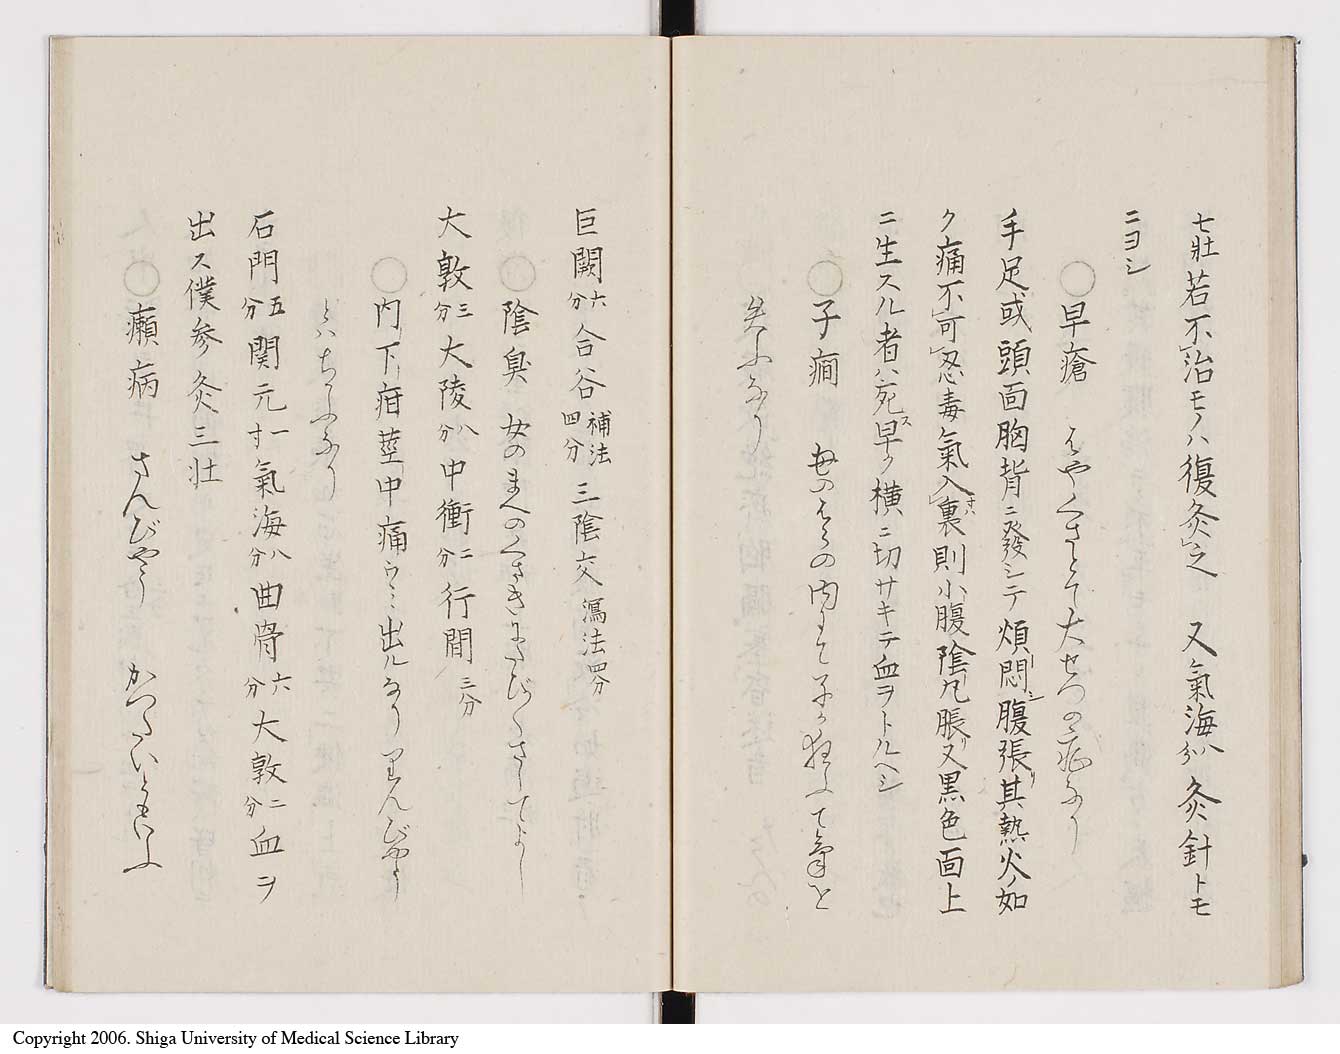 七壯若不治モノハ復灸之 又氣海八分灸針トモ
ニヨシ
○早瘡 はやくさとて大せつの症なり
手足或頭面胸背ニ發シテ煩悶シ腹張リ其熱火ノ如
ク痛不可忍毒氣入裏則小腹陰丸脹リ又黒色面上
ニ生スル者ハ死ス早ク横ニ切サキテ血ヲトルヘシ
○子癇 母のはらの内にて子か狂ふて氣を
失ふなり
巨闕六分合谷補法四分三陰交瀉法四分
○陰臭 女のまへのくさきにたびたびさしてよし
大敦三分大陵八分中衝二分行間三分
○内下疳莖中痛ウミ出ルなり りんびやう
といふなり
石門五分関元一寸氣海八分曲骨六分大敦二分血ヲ
出ス僕参灸三壮
○癩病 さんびやう かつたいともいふ
Copyright 2006. Shiga University of Medical Science Library